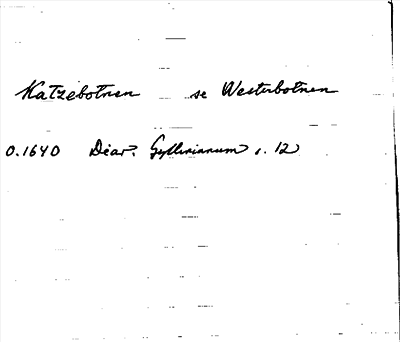 Katzebotnen se Westerbotnen
0.1640 Diar. Gyllenianum s. 12